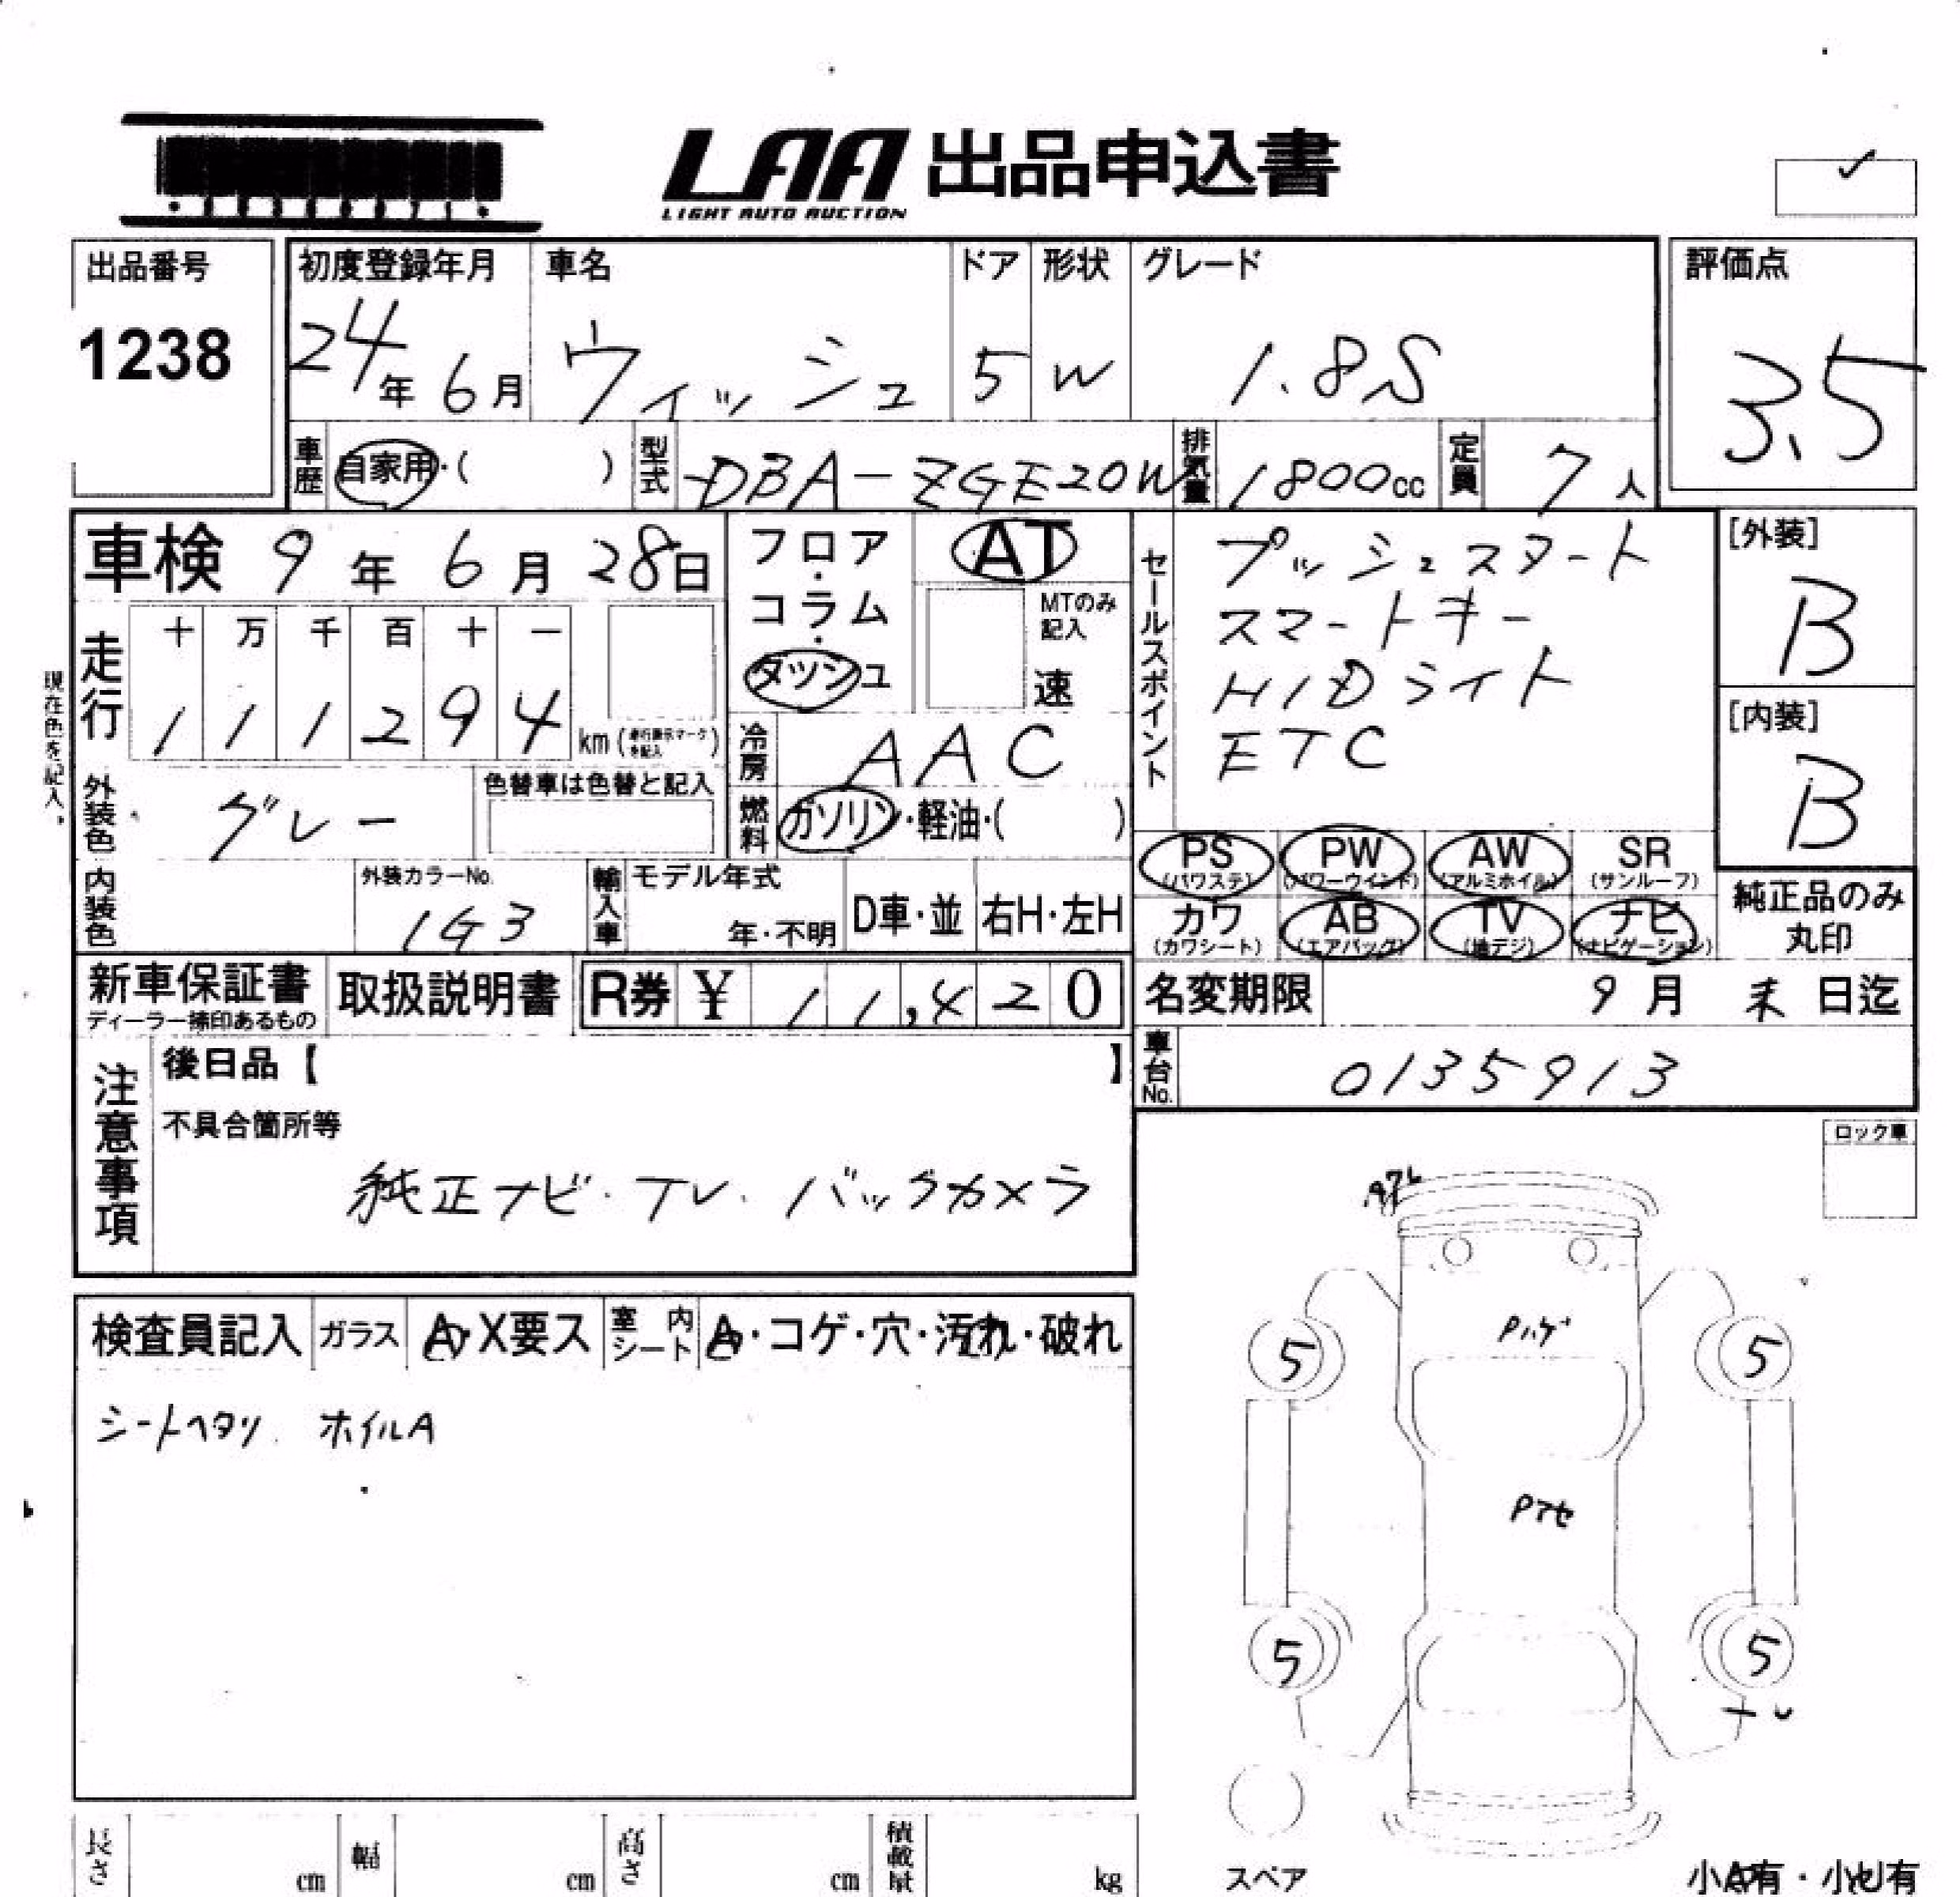 LAA 出品申込書
LIGHT AUTO AUCTION
出品番号
1238
初度登録年月
24年6月
車名
ウィッシュ
ドア
5
形状
W
グレード
1.8S
評価点
3.5
車歴
自家用・( )
型式
DBA-ZGE20W
排気量
1800cc
定員
7人
車検 9年6月28日
フロア・コラム・ダッシュ
AT
MTのみ記入
速
セールスポイント
プッシュスタート
スマートキー
HIDライト
ETC
[外装]
B
[内装]
B
現在色を記入。
走行
十 万 千 百 十 一
1 1 1 2 9 4 km
冷房
AAC
外装色
グレー
色替車は色替と記入
燃料
ガソリン・軽油・( )
PS (パワステ) PW (パワーウインド) AW (アルミホイル) SR (サンルーフ)
カワ (カワシート) AB (エアバッグ) TV (地デジ) ナビ (ナビゲーション)
純正品のみ丸印
内装色
外装カラーNo.
1G3
輸入車
モデル年式
年・不明
D車・並
右H・左H
新車保証書
ディーラー捺印あるもの
取扱説明書
R券 ¥ 11,420
名変期限 9月 末日迄
車台No.
0135913
注意事項
後日品【 】
不具合箇所等
純正ナビ・TV・バックカメラ
ロック車
検査員記入 ガラス A・X要ス 室内シート A・コゲ・穴・汚れ・破れ
シートヘタリ ホイルA
Pハゲ
5 5
Pアセ
5 5
長さ cm 幅 cm 高さ cm 積載量 kg
スペア
小A有・小U有